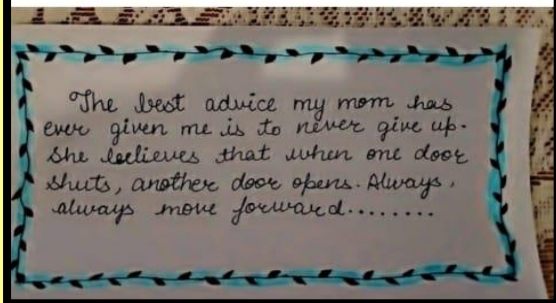 The best advice my mom has
ever given me is to never give up.
She believes that when one door
shuts, another door opens. Always,
always move forward........